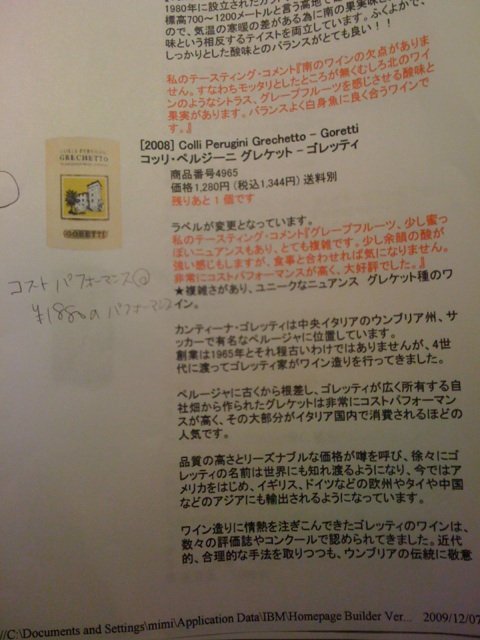 1980年に設立された
標高700～1200メートルと言う高地で
ので、気温の寒暖の差がある為に南の果実味と
味という相反するテイストを両立しています。ふくよかで、
しっかりとした酸味とのバランスがとても良い！！
私のテースティング・コメント『南のワインの欠点がありま
せん。すなわちモッタリとしたところが無くむしろ北のワイ
ンのようなシトラス、グレープフルーツを感じさせる酸味と
果実があります。バランスよく白身魚に良く合うワインで
す。』
[2008] Colli Perugini Grechetto – Goretti
コッリ・ペルジーニ グレケット – ゴレッティ
商品番号4965
価格1,280円 (税込1,344円) 送料別
残りあと 1 個です
COLLI PERUGINI
GRECHETTO
GORETTI
ラベルが変更となっています。
私のテースティング・コメント『グレープフルーツ、少し蜜っ
ぽいニュアンスもあり、とても複雑です。少し余韻の酸が
強い感じもしますが、食事と合わせれば気になりません。
非常にコストパフォーマンスが高く、大好評でした。』
★複雑さがあり、ユニークなニュアンス グレケット種のワ
イン。
コストパフォーマンス◎
¥1880のパフォーマンス
カンティーナ・ゴレッティは中央イタリアのウンブリア州、サ
ッカーで有名なペルージャに位置しています。
創業は1965年とそれ程古いわけではありませんが、4世
代に渡ってゴレッティ家がワイン造りを行ってきました。
ペルージャに古くから根差し、ゴレッティが広く所有する自
社畑から作られたグレケットは非常にコストパフォーマン
スが高く、その大部分がイタリア国内で消費されるほどの
人気です。
品質の高さとリーズナブルな価格が噂を呼び、徐々にゴ
レッティの名前は世界にも知れ渡るようになり、今ではア
メリカをはじめ、イギリス、ドイツなどの欧州やタイや中国
などのアジアにも輸出されるようになっています。
ワイン造りに情熱を注ぎこんできたゴレッティのワインは、
数々の評価誌やコンクールで認められてきました。近代
的、合理的な手法を取りつつも、ウンブリアの伝統に敬意
//C:\Documents and Settings\mimi\Application Data\IBM\Homepage Builder Ver... 2009/12/07